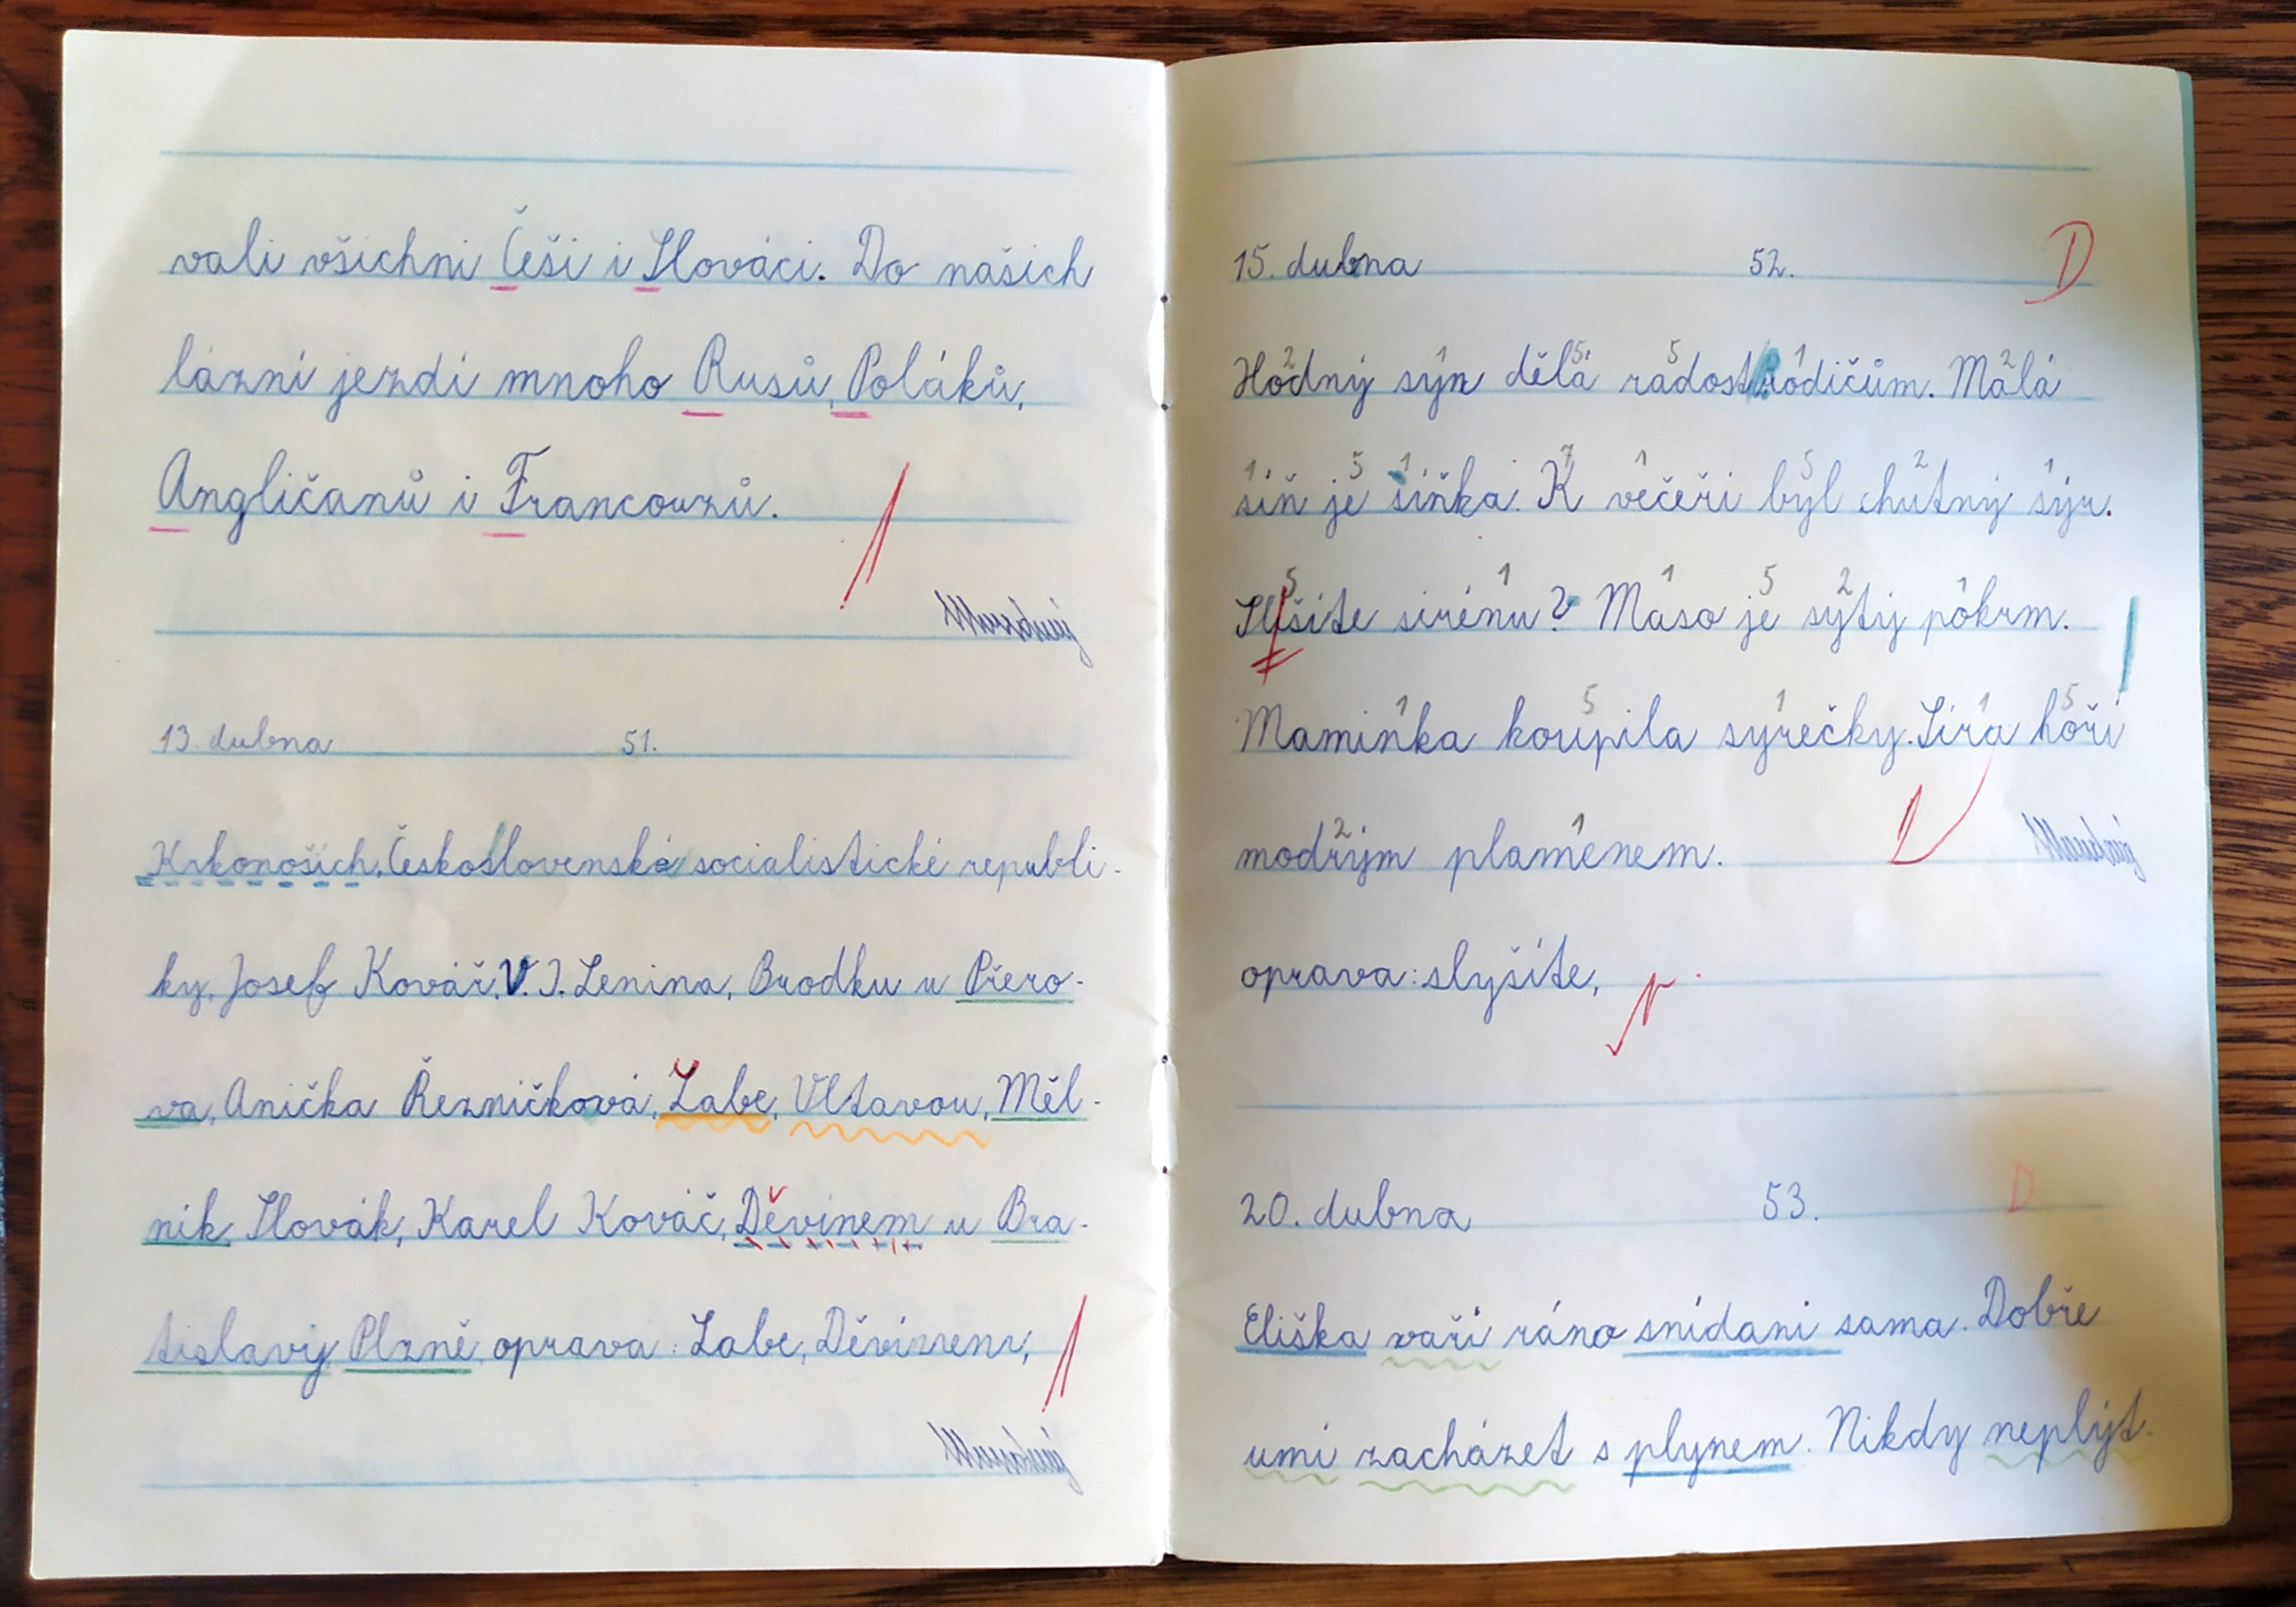 vali všichni Češi i Slováci. Do našich
lázní jezdí mnoho Rusů, Poláků,
Angličanů i Francouzů.
13. dubna 51.
Krkonoších, Československé socialistické republi-
ky, Josef Kovář, V. I. Lenina, Brodku u Přero-
va, Anička Řezníčková, Labe, Vltavou, Měl-
ník, Slovák, Karel Kováč, Děvínem u Bra-
tislavy, Plzně, oprava: Labe, Děvínem,
15. dubna 52. D
2 1 5 5 1 2
Hodný syn dělá radost rodičům. Malá
1 5 1 7 1 5 2 1
síň je síňka. K večeři byl chutný sýr.
5 1 1 5 2 1
Slyšíte sirénu? Maso je sytý pokrm.
1 5 1 1 5
Maminka koupila syrečky. Síra hoří
2 1
modrým plamenem.
oprava: slyšíte,
20. dubna 53. D
Eliška vaří ráno snídani sama. Dobře
umí zacházet s plynem. Nikdy neplýt-